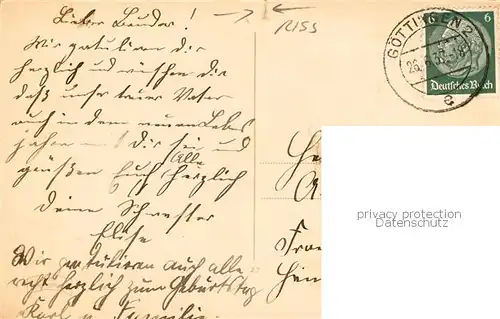 Lieber Bruder!
Wir gratulieren dir
herzlich und wünschen dir
daß unser treuer Vater
auch in dem neuen Lebens
jahre mit Dir sei und
grüßen Euch Alle herzlich
Deine Schwester
Elise
Wir gratulieren auch alle
recht herzlich zum Geburtstag
Karl u. Familie.
RISS
GÖTTINGEN 2
e
6
Deutsches Reich
privacy protection
Datenschutz